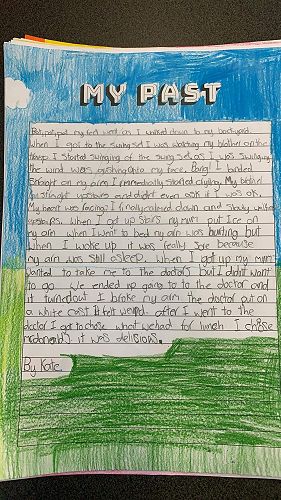 MY PAST
Pat,pat,pat my feet went as I walked down to my backyard.
When I got to the swing set I was watching my brother on the
I started swinging of the swing set, as I was swinging
the wind was pushing onto my face. Bang! I landed
straight on my arm I immediatly started crying. My brother
ran straight upstairs and didn't even ask if I was ok.
My heart was racing! I finally calmed down and slowly walked
upstairs. When I got up stairs my mum put ice on
my arm when I went to bed my arm was hurting but
when I woke up it was really sore because
my arm was still asleep. When I got up my mum
wanted to take me to the doctors but I didn't want
to go. We ended up going to to the doctor and
it turned out I broke my arm. the doctor put on
a white cast It felt weird. after I went to the
doctor I got to chose what we had for lunch I chose
mcdonald's it was delisious.
By Kate